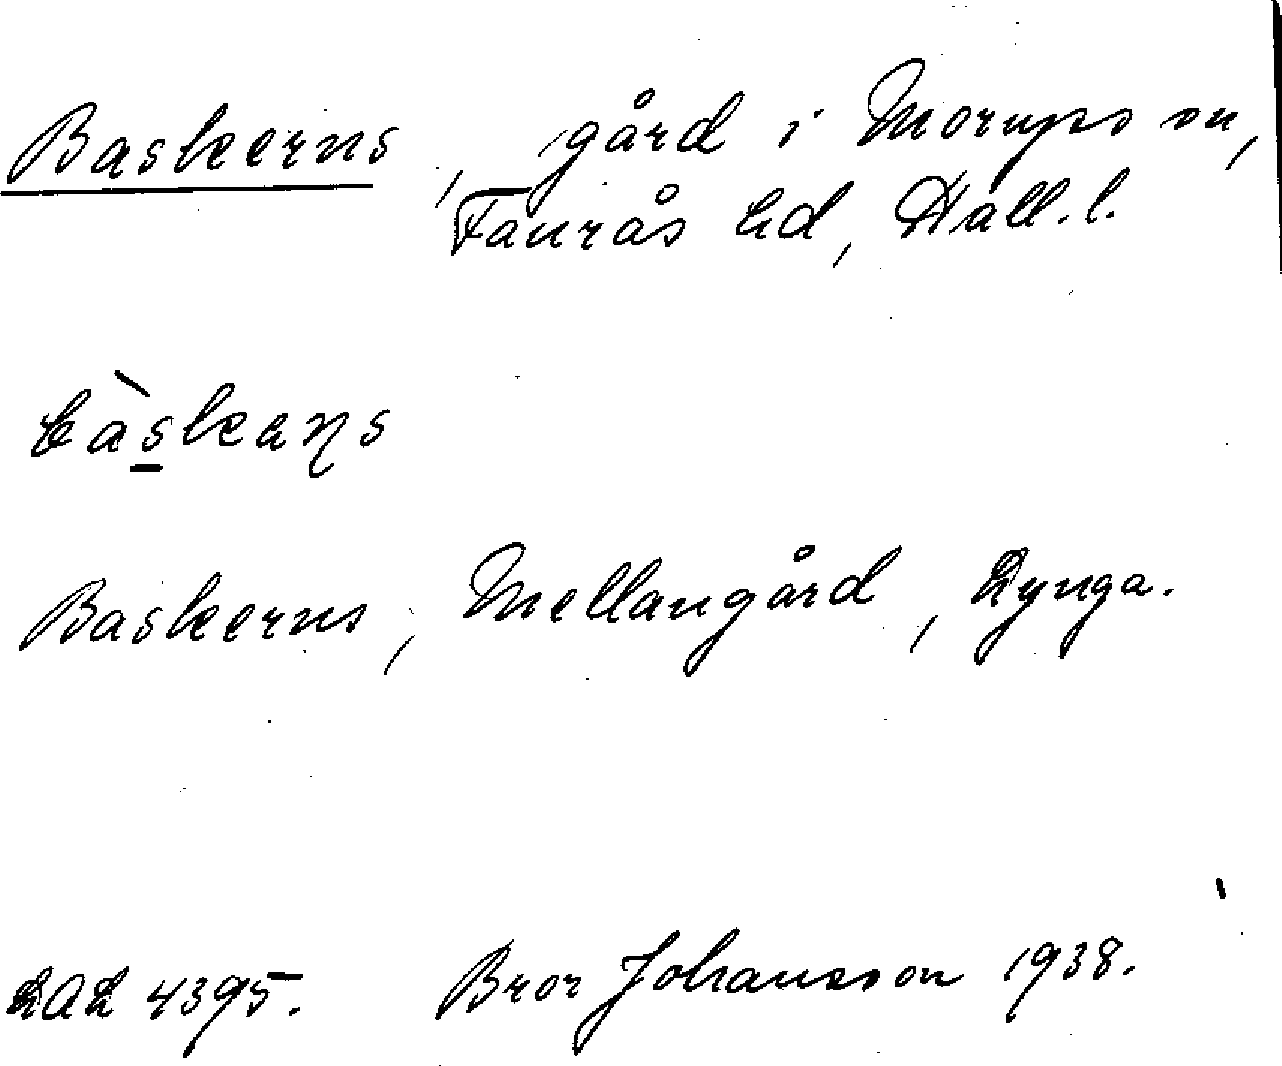 Baskerns, gård i Morups sn,
Faurås hd, Hall. l.
bàs̠kaɳs
Baskerns, Mellangård, Lynga.
LAL 4395. Bror Johansson 1938.